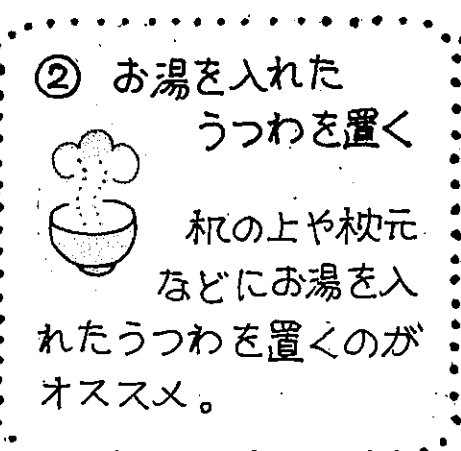 ② お湯を入れた
うつわを置く
机の上や枕元
などにお湯を入
れたうつわを置くのが
オススメ。